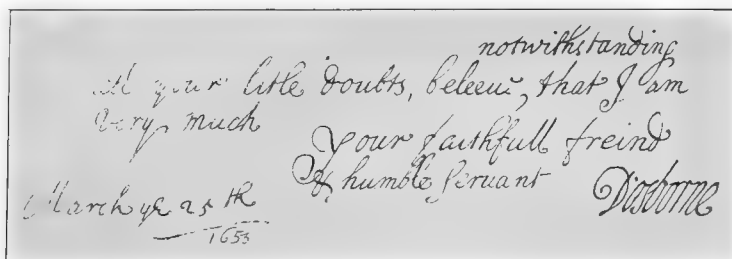 notwithstanding
all your litle doubts, beleeue, that I am
Very much
Your faithfull freind
& humble seruant
DOsborne
March ye 25th
1653